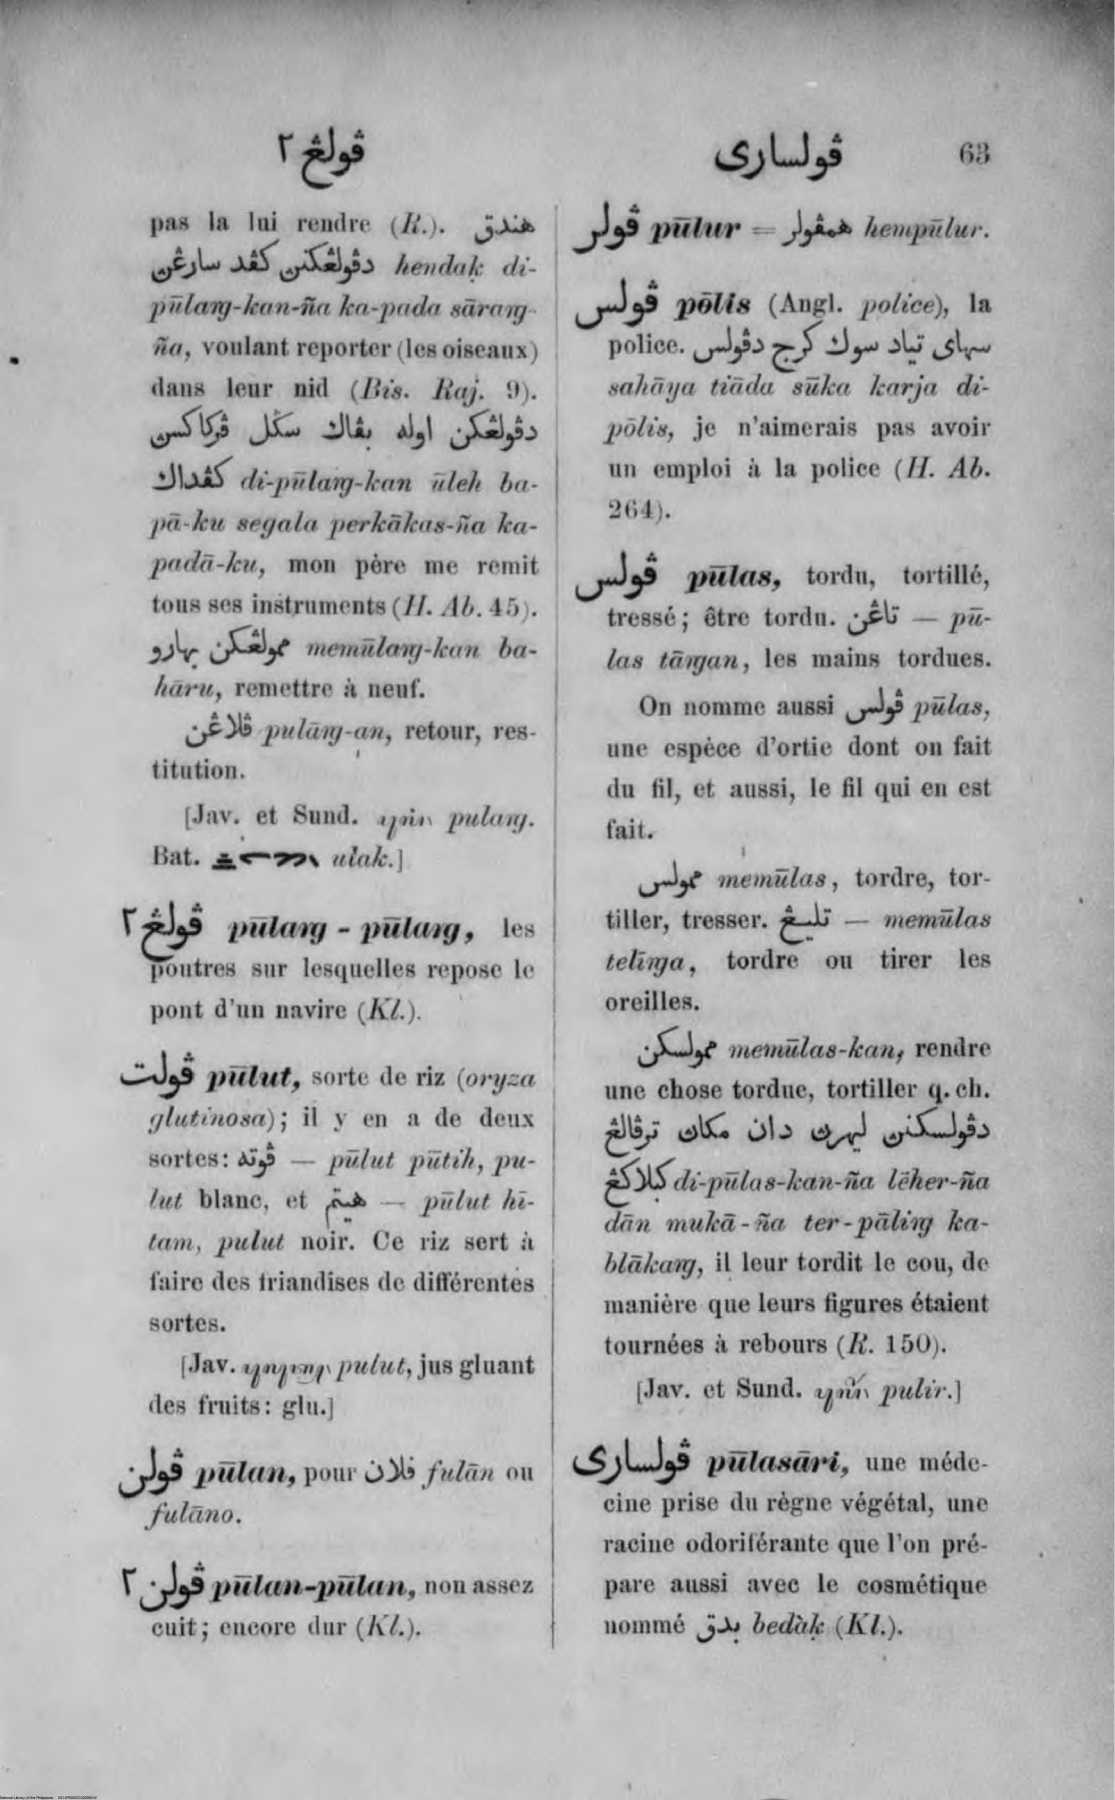 ڤولڠ ٢
ڤولساري 63
pas la lui rendre (R.). هندق
دڤولڠكنن كڤد سارڠن hendaḳ di-
pūlaŋ-kan-ña ka-pada sāraŋ-
ña, voulant reporter (les oiseaux)
dans leur nid (Bis. Raj. 9).
دڤولڠكن اوله بڤاك سڬل ڤركاكسن
كڤداك di-pūlaŋ-kan ūleh ba-
pā-ku segala perkākas-ña ka-
padā-ku, mon père me remit
tous ses instruments (H. Ab. 45).
ممولڠكن بهارو memūlaŋ-kan ba-
hāru, remettre à neuf.
ڤلاڠن pulāŋ-an, retour, res-
titution.
[Jav. et Sund. pulaŋ.
Bat. ulak.]
ڤولڠ ٢ pūlaŋ-pūlaŋ, les
poutres sur lesquelles repose le
pont d'un navire (Kl.).
ڤولت pūlut, sorte de riz (oryza
glutinosa); il y en a de deux
sortes: ڤوته — pūlut pūtih, pu-
lut blanc, et هيتم — pūlut hī-
tam, pulut noir. Ce riz sert à
faire des friandises de différentes
sortes.
[Jav. pulut, jus gluant
des fruits: glu.]
ڤولن pūlan, pour فلان fulān ou
fulāno.
ڤولن ٢ pūlan-pūlan, non assez
cuit; encore dur (Kl.).
ڤولر pūlur = همڤولر hempūlur.
ڤولس pōlis (Angl. police), la
police. سهاي تياد سوك كرج دڤولس
sahāya tiāda sūka karja di-
pōlis, je n'aimerais pas avoir
un emploi à la police (H. Ab.
264).
ڤولس pūlas, tordu, tortillé,
tressé; être tordu. تاڠن — pū-
las tāŋan, les mains tordues.
On nomme aussi ڤولس pūlas,
une espèce d'ortie dont on fait
du fil, et aussi, le fil qui en est
fait.
ممولس memūlas, tordre, tor-
tiller, tresser. تليڠ — memūlas
telīŋa, tordre ou tirer les
oreilles.
ممولسكن memūlas-kan, rendre
une chose tordue, tortiller q. ch.
دڤولسكنن ليهرن دان مكان ترڤالڠ
كبلاكڠ di-pūlas-kan-ña lēher-ña
dān mukā-ña ter-pāliŋ ka-
blākaŋ, il leur tordit le cou, de
manière que leurs figures étaient
tournées à rebours (R. 150).
[Jav. et Sund. pulir.]
ڤولساري pūlasāri, une méde-
cine prise du règne végétal, une
racine odoriférante que l'on pré-
pare aussi avec le cosmétique
nommé بدق bedàḳ (Kl.).